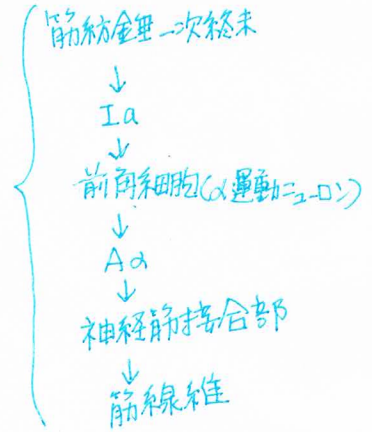 筋紡錘一次終末
↓
Ia
↓
前角細胞(α運動ニューロン)
↓
Aα
↓
神経筋接合部
↓
筋線維